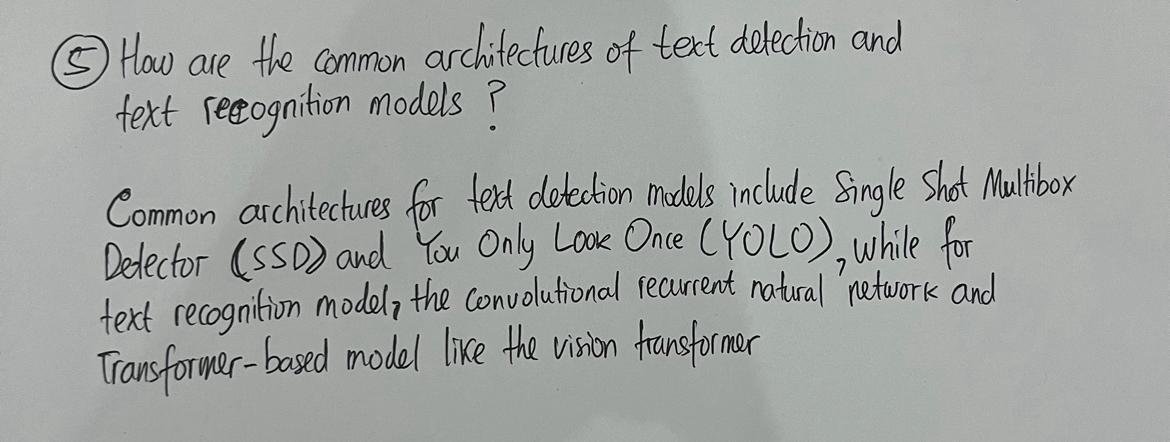 ⑤ How are the common architectures of text detection and
text recognition models ?
Common architectures for text detection models include Single Shot Multibox
Detector (SSD) and You Only Look Once (YOLO), while for
text recognition model, the convolutional recurrent natural network and
Transformer-based model like the vision transformer